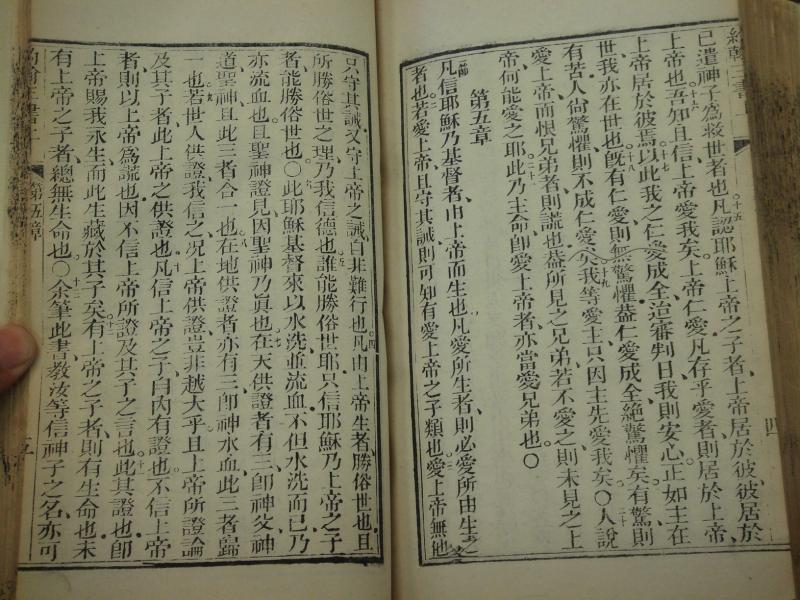 約翰上書
已遣神子爲救世者也凡認耶穌上帝之子者上帝居於彼彼居於
上帝也吾知且信上帝愛我矣上帝仁愛凡存乎愛者則居於上帝
上帝居於彼焉以此我之仁愛成全迨審判日我則安心正如主在
世我亦在世也旣有仁愛則無驚懼葢仁愛成全絕驚懼矣有驚則
有苦人尙驚懼則不成仁愛矣我等愛主只因主先愛我矣〇人說
愛上帝而恨兄弟者則謊也葢所見之兄弟若不愛之則未見之上
帝何能愛之耶此乃主命卽愛上帝者亦當愛兄弟也〇
第五章
凡信耶穌乃基督者由上帝而生也凡愛所生者則必愛所由生之
者也若愛上帝且守其誡則可知有愛上帝之子類也愛上帝無他
四
只守其誡又守上帝之誡自非難行也凡由上帝生者勝俗世也且
所勝俗世之理乃我信德也誰能勝俗世耶只信耶穌乃上帝之子
者能勝俗世也〇此耶穌基督來以水洗並流血不但水洗而已乃
亦流血也且聖神證見因聖神乃眞也在天供證者有三卽神父神
道聖神且此三者合一也在地供證者亦有三卽神水血此三者歸
一也若世人供證我信之况上帝供證豈非越大乎且上帝所證論
及其子者此上帝之供證也凡信上帝之子自內有證也不信上帝
者則以上帝爲謊也因不信上帝所證及其子之言也此其證也卽
上帝賜我永生而此生藏於其子矣有上帝之子者則有生命也未
有上帝之子者總無生命也〇余筆此書敎汝等信神子之名亦可
約翰上書
第五章